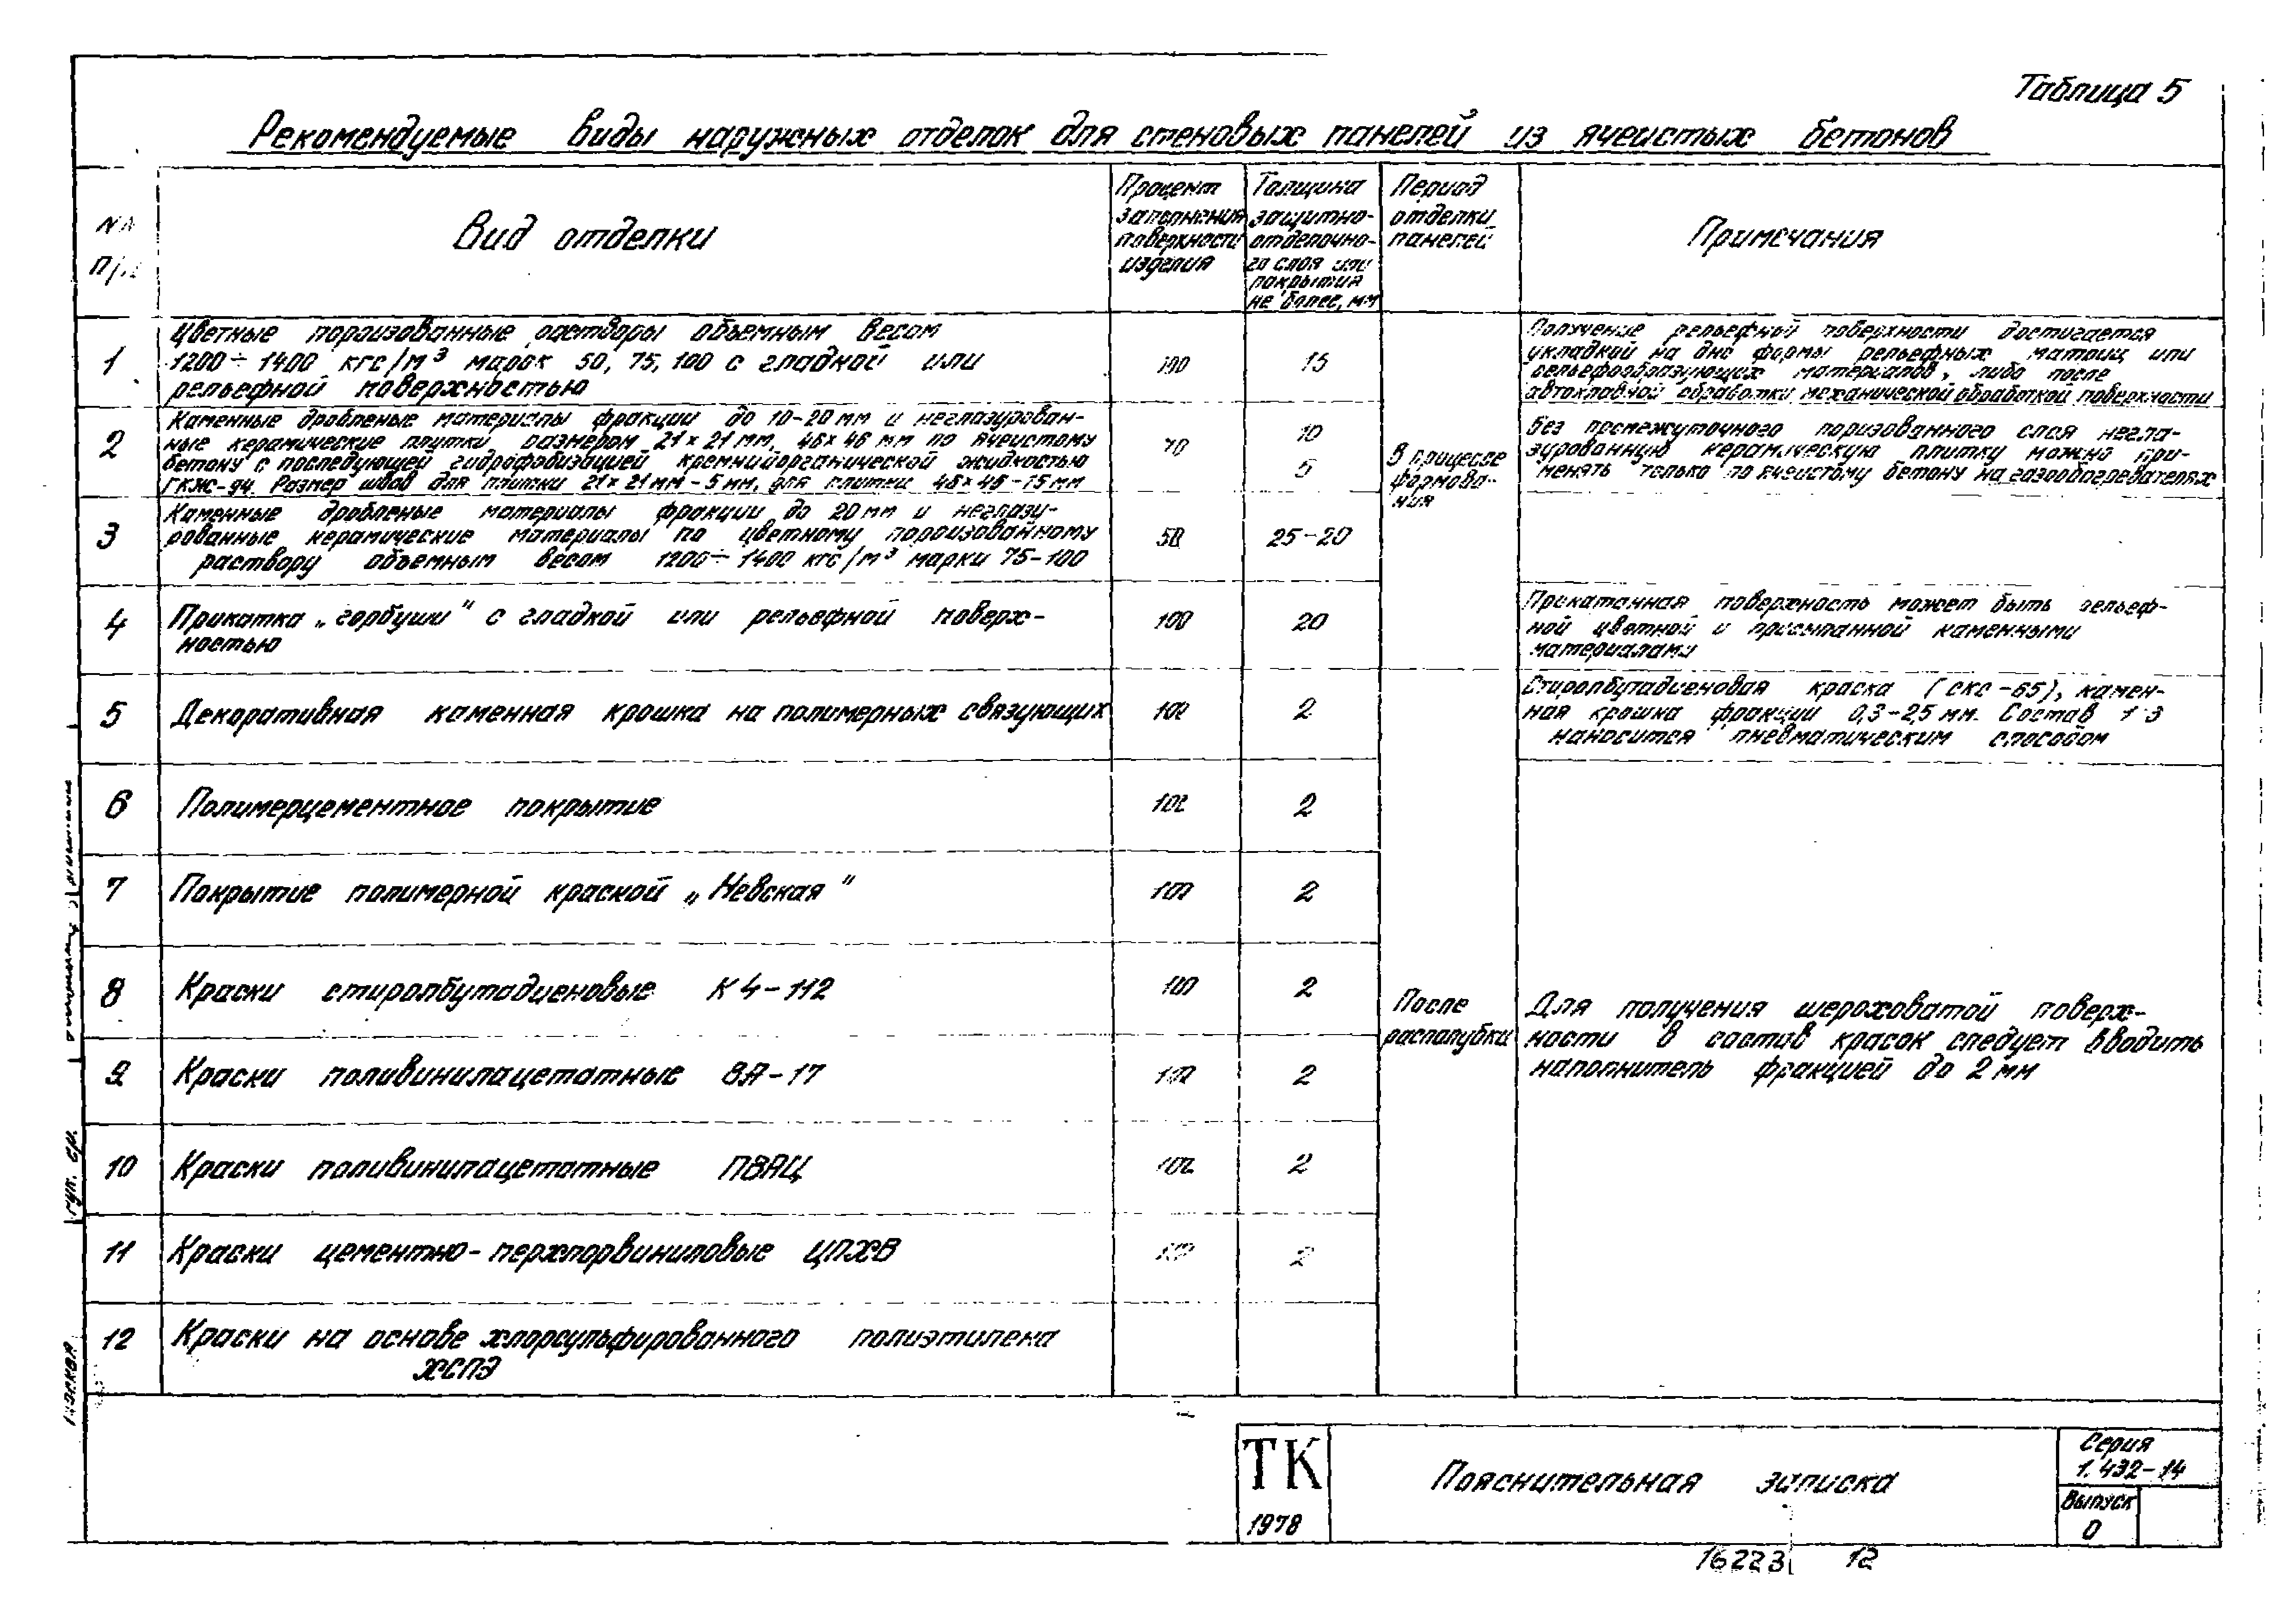 Таблица 5
Рекомендуемые виды наружных отделок для стеновых панелей из ячеистых бетонов
Вид отделки
Процент
заполнения
поверхности
изделия
Толщина
защитно-
отделочно-
го слоя или
покрытия
не более, мм
Период
отделки
панелей
Примечания
1
Цветные поризованные растворы объемным весом
1200÷1400 кгс/м³ марок 50, 75, 100 с гладкой или
рельефной поверхностью
100
15
Получение рельефной поверхности достигается
укладкой на дно формы рельефных матриц или
рельефообразующих материалов, либо после
автоклавной обработки механической обработкой поверхности
2
Каменные дробленые материалы фракции до 10-20 мм и неглазурован-
ные керамические плитки размером 21×21 мм, 46×46 мм по ячеистому
бетону с последующей гидрофобизацией кремнийорганической жидкостью
ГКЖ-94. Размер швов для плитки 21×21 мм - 5 мм, для плитки 46×46 - 15 мм
70
10
5
В процессе
формова-
ния
Без промежуточного поризованного слоя негла-
зурованную керамическую плитку можно при-
менять только по ячеистому бетону на газообогревателях
3
Каменные дробленые материалы фракции до 20 мм и неглазу-
рованные керамические материалы по цветному поризованному
раствору объемным весом 1200÷1400 кгс/м³ марки 75-100
50
25-20
4
Прикатка „горбуши" с гладкой или рельефной поверх-
ностью
100
20
Прикатанная поверхность может быть рельеф-
ной цветной и присыпанной каменными
материалами
5
Декоративная каменная крошка на полимерных связующих
100
2
Стиролбутадиеновая краска (СКС-65), камен-
ная крошка фракции 0,3-2,5 мм. Состав 1:3
наносится пневматическим способом
6
Полимерцементное покрытие
100
2
7
Покрытие полимерной краской „Невская"
100
2
8
Краски стиролбутадиеновые КЧ-112
100
2
После
распалубки
Для получения шероховатой поверх-
ности в состав красок следует вводить
наполнитель фракцией до 2 мм
9
Краски поливинилацетатные ВА-17
100
2
10
Краски поливинилацетатные ПВАЦ
100
2
11
Краски цементно-перхлорвиниловые ЦПХВ
100
2
12
Краски на основе хлорсульфированного полиэтилена
ХСПЭ
ТК
1978
Пояснительная записка
Серия
1.432-14
Выпуск
0
16223 12